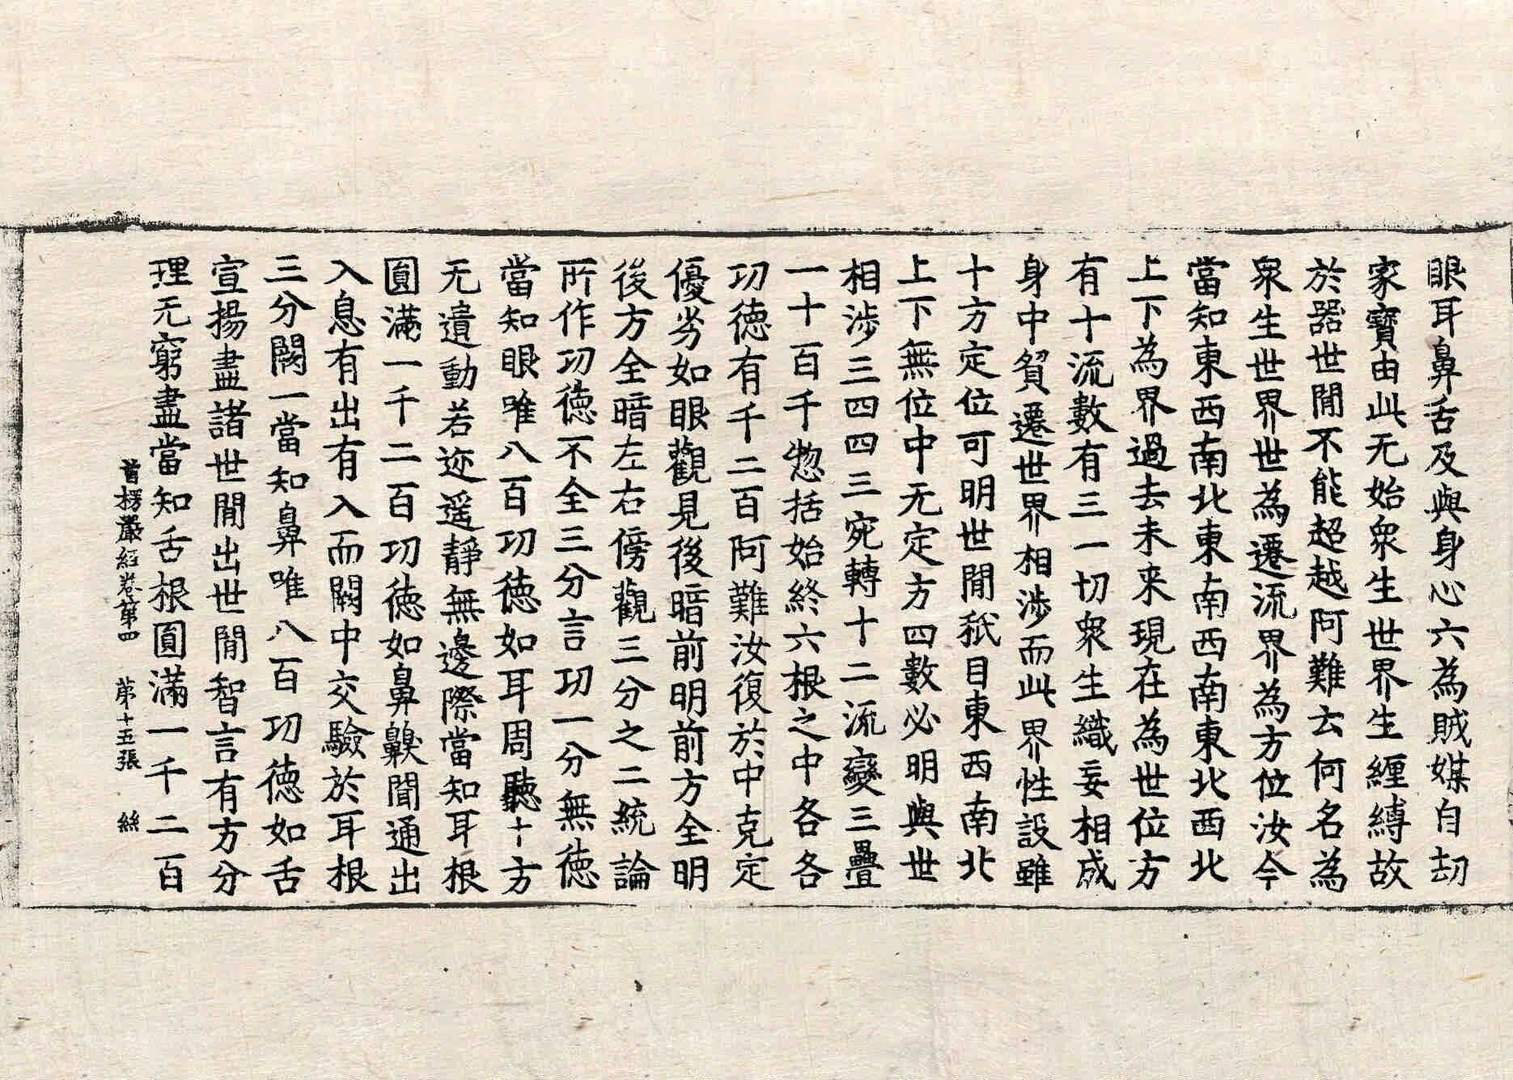 眼耳鼻舌及與身心六為賊媒自劫
家寶由此无始衆生世界生纏縛故
於器世間不能超越阿難云何名為
衆生世界世為遷流界為方位汝今
當知東西南北東南西南東北西北
上下為界過去未来現在為世位方
有十流數有三一切衆生織妄相成
身中貿遷世界相涉而此界性設雖
十方定位可明世間秖目東西南北
上下無位中无定方四數必明與世
相涉三四四三宛轉十二流變三疊
一十百千惣括始終六根之中各各
功德有千二百阿難汝復於中克定
優劣如眼觀見後暗前明前方全明
後方全暗左右傍觀三分之二統論
所作功德不全三分言功一分無德
當知眼唯八百功德如耳周聽十方
无遺動若迩遥靜無邊際當知耳根
圓滿一千二百功德如鼻齅聞通出
入息有出有入而闕中交驗於耳根
三分闕一當知鼻唯八百功德如舌
宣揚盡諸世間出世間智言有方分
理无窮盡當知舌根圓滿一千二百
首楞嚴經卷第四 第十五張 絲